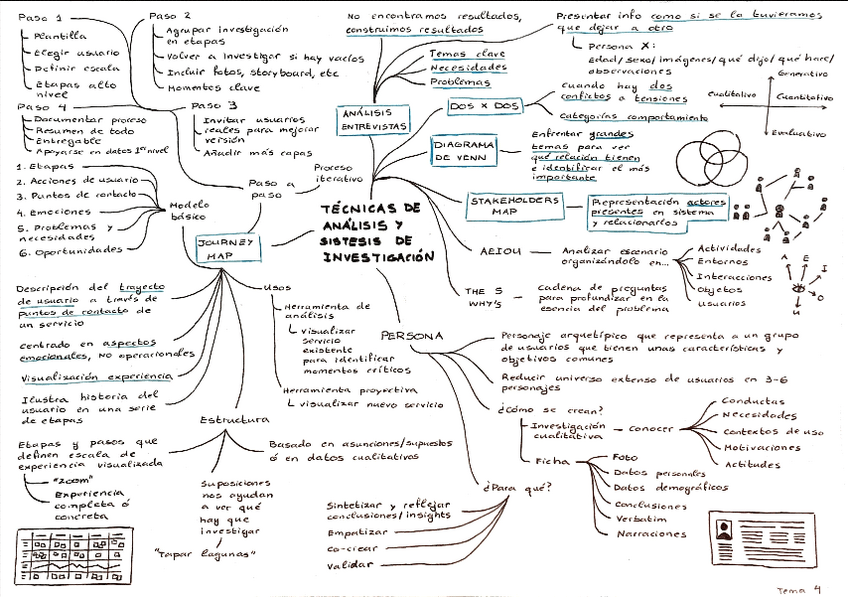 Paso 1
Plantilla
Elegir usuario
Definir escala
Etapas alto
nivel
Paso 2
Agrupar investigación
en etapas
Volver a investigar si hay vacíos
Incluir fotos, storyboard, etc
Momentos clave
Paso 4
Documentar proceso
Resumen de todo
Entregable
Apoyarse en datos 1er nivel
Paso 3
Invitar usuarios
reales para mejorar
versión
Añadir más capas
1. Etapas
2. Acciones de usuario
3. Puntos de contacto
4. Emociones
5. Problemas y
necesidades
6. Oportunidades
Modelo
básico
Paso a
paso
Proceso
iterativo
JOURNEY
MAP
TÉCNICAS DE
ANÁLISIS Y
SISTESIS DE
INVESTIGACIÓN
No encontramos resultados,
construimos resultados
Temas clave
Necesidades
Problemas
ANÁLISIS
ENTREVISTAS
Presentar info como si se la tuvieramos
que dejar a otro
Persona X:
Edad/sexo/imágenes/qué dijo/qué hace/
observaciones
DOS X DOS
cuando hay dos
conflictos o tensiones
categorías comportamiento
Generativo
Cualitativo
Cuantitativo
Evaluativo
DIAGRAMA
DE VENN
Enfrentar grandes
temas para ver
qué relación tienen
e identificar el más
importante
STAKEHOLDERS
MAP
Representación actores
presentes en sistema
y relacionarlos
AEIOU
Analizar escenario
organizándolo en...
Actividades
Entornos
Interacciones
Objetos
Usuarios
A
E
I
O
U
THE 5
WHY'S
cadena de preguntas
para profundizar en la
esencia del problema
Descripción del trayecto
de usuario a través de
puntos de contacto de
un servicio
centrado en aspectos
emocionales, no operacionales
Visualización experiencia
Ilustra historia del
usuario en una serie
de etapas
Usos
Herramienta de
análisis
visualizar
servicio
existente
para identificar
momentos críticos
Herramienta proyectiva
visualizar nuevo servicio
Estructura
Etapas y pasos que
definen escala de
experiencia visualizada
"zoom"
Experiencia
completa ó
concreta
Suposiciones
nos ayudan
a ver qué
hay que
investigar
"Tapar lagunas"
Basado en asunciones/supuestos
ó en datos cualitativos
PERSONA
Personaje arquetípico que representa a un grupo
de usuarios que tienen unas características y
objetivos comunes
Reducir universo extenso de usuarios en 3-6
personajes
¿Cómo se crean?
Investigación
cualitativa
conocer
Conductas
Necesidades
Contextos de uso
Motivaciones
Actitudes
Ficha
Foto
Datos personales
Datos demográficos
Conclusiones
Verbatim
Narraciones
¿Para qué?
Sintetizar y reflejar
conclusiones/insights
Empatizar
co-crear
validar
Tema 4